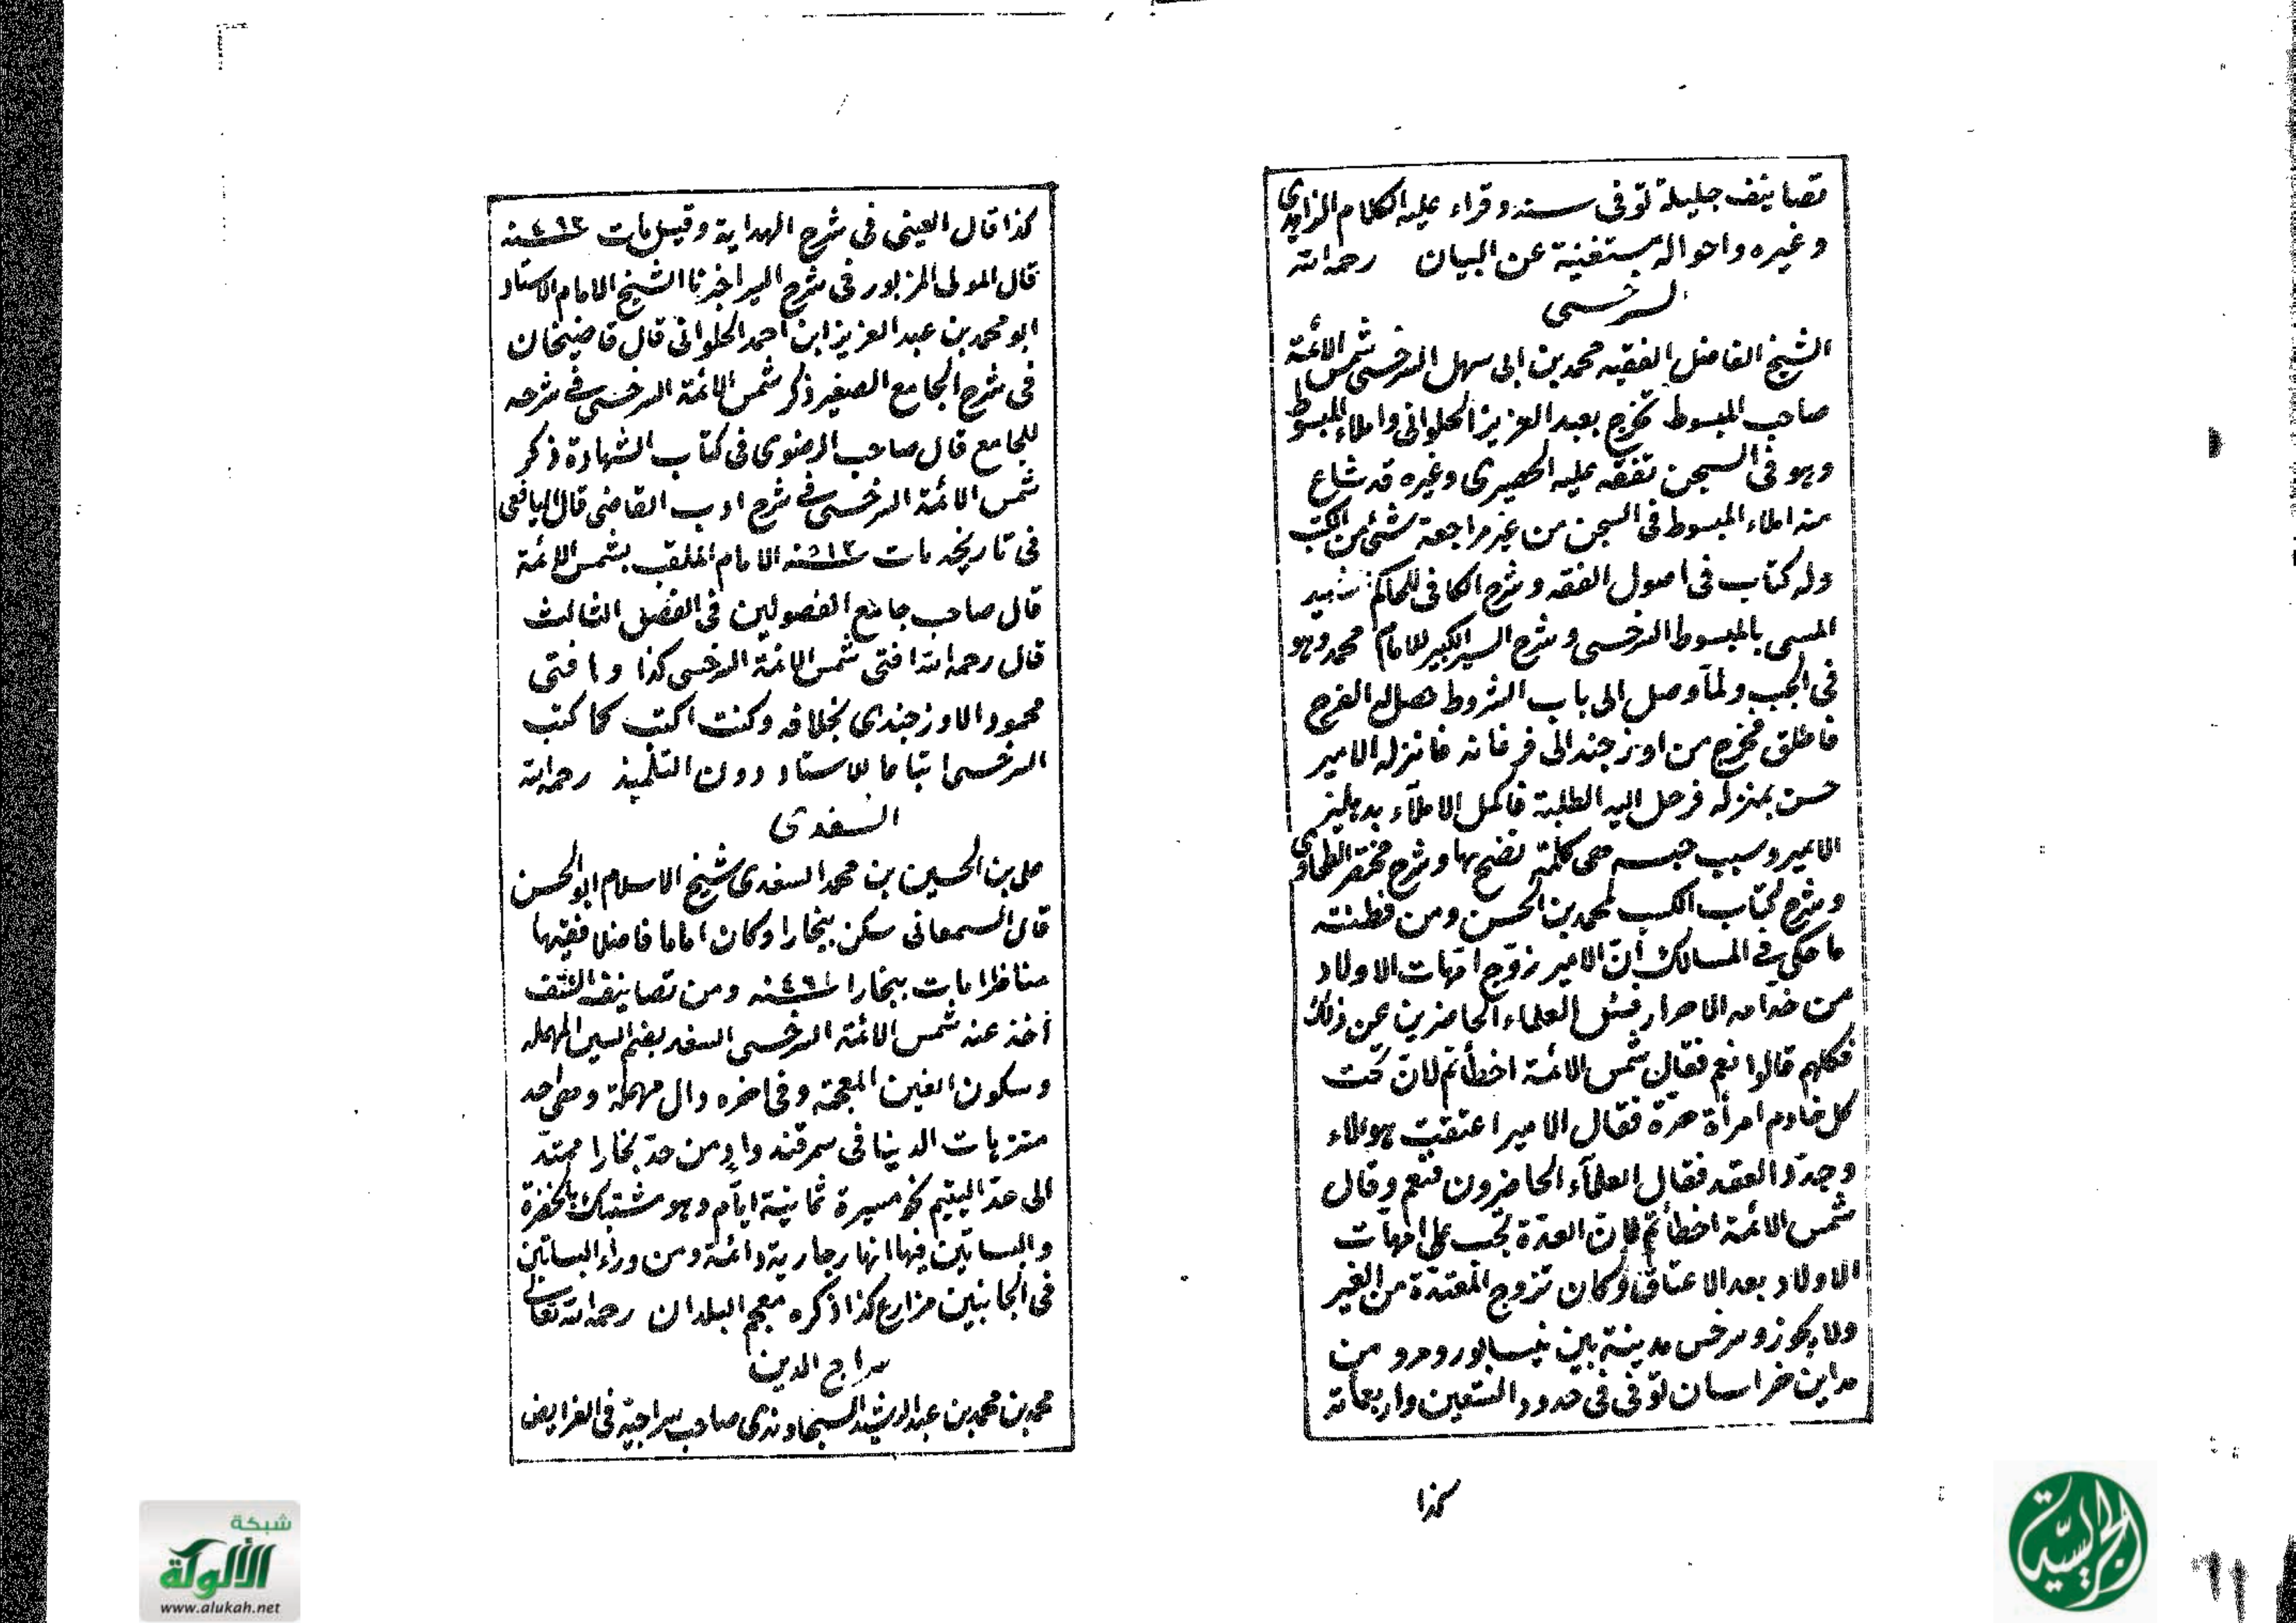 تصانيف جليلة توفى سنه وقراء عليه الكلام الزاهدى
وغيره واحواله مستغنية عن البيان رحمه الله
السرخسى
الشيخ الفاضل الفقيه محمد بن ابى سهل السرخسى شمس الائمة
صاحب المبسوط تخرج بعبد العزيز الحلوانى واملاء المبسوط
وهو فى السجن تفقه عليه الحصيرى وغيره قد شاع
منه املاء المبسوط فى السجن من غير مراجعة شئ من الكتب
وله كتاب فى اصول الفقه وشرح الكافى للحاكم شهيد
المسمى بالمبسوط السرخسى وشرح السير الكبير للامام محمد وهو
فى الجب ولما وصل الى باب الشروط حصل له الفرج
فاطلق فخرج من اوزجند الى فرغانه فانزله الامير
حسن بمنزله فرحل اليه الطلبة فاكمل الاملآء بدهليز
الامير وسبب حبسه هى كلمة نصح بها وشرح مختصر الطحاوى
وشرح كتاب الكسب لمحمد بن الحسن ومن فطنته
ما حكى فى المسالك أنّ الامير زوّج امّهات الاولاد
من خدامه الاحرار فسئل العلماء الحاضرين عن ذلك
فكلهم قالوا نعم فقال شمس الائمة اخطأتم لانّ تحت
كل خادم امرأة حرّة فقال الامير اعتقت هوٰلاء
وجدّد العقد فقال العلمآء الحاضرون نعم وقال
شمس الائمة اخطأتم لانّ العدّة تجب على امّهات
الاولاد بعد الاعتاق وكان تزوج المعتدّة من الغير
ولا يجوز وسرخس مدينة بين نيسابور ومرو من
مداين خراسان توفى فى حدود التسعين واربعمائه
كذا
كذا قال العينى فى شرح الهداية وقيل مات ٤٩٣ سنه
قال المولى المزبور فى شرح السير اخبرنا الشيخ الامام الاستاد
ابو محمد بن عبد العزيز ابن احمد الحلوانى قال قاضيخان
فى شرح الجامع الصغير ذكر شمس الائمة السرخسى فى شرحه
للجامع قال صاحب الرضوى فى كتاب الشهادة ذكر
شمس الائمة السرخسى فى شرح ادب القاضى قال اليافعى
فى تاريخه مات سنه الامام الملقب بشمس الائمة
قال صاحب جامع الفصولين فى الفصل الثالث
قال رحمه الله افتى شمس الائمة السرخسى كذا وافتى
محمود الاوزجندى بخلافه وكنت اكتب كما كتب
السرخسى اتباعا للاستاد دون التلميذ رحمه الله
السغدى
على بن الحسين بن محمد السغدى شيخ الاسلام ابو الحسن
قال السمعانى سكن بخارا وكان اماما فاضلا فقيها
مناظرا مات ببخارا ٤٦١ سنه ومن تصانيفه النتف
أخذ عنه شمس الائمة السرخسى السغد بضم السين المهمله
وسكون الغين المعجمة وفى اخره دال مهملة وهى احد
متنزهات الدينا فى سمرقند واد من حدّ بخارا ممتدّ
الى حدّ نحو مسيرة ثمانية ايّام وهو مشتبك الخضرة
والبساتين فيها انهار جارية دائمة ومن ورآء البساتين
فى الجانبين مزارع كذا ذكره معجم البلدان رحمه الله تعالى
سراج الدين
محمد بن محمد بن عبد الرشيد السجاوندى صاحب سراجية فى الفرايض
شبكة
الألوكة
www.alukah.net